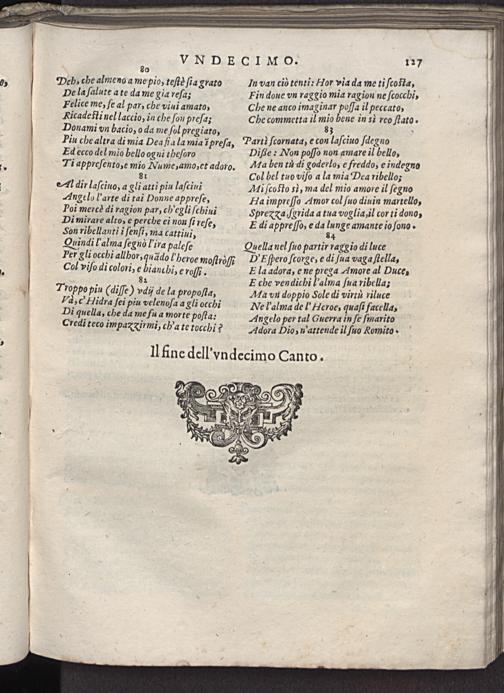 VNDECIMO. 127
80
Deh, che almeno a me pio, testè sia grato
De la salute a te da me gia resa;
Felice me, se al par, che viui amato,
Ricadesti nel laccio, in che son presa;
Donami vn bacio, o da me sol pregiato,
Piu che altra di mia Dea sia la mia ĩpresa,
Ed ecco del mio bello ogni thesoro
Ti appresento, e mio Nume, amo, et adoro.
81
Al dir lasciuo, a gli atti piu lasciui
Angelo l'arte di tai Donne apprese,
Poi mercè di ragion par, ch'egli schiui
Di mirare alto, e perche ei non si rese,
Son ribellanti i sensi, ma cattiui,
Quindi l'alma segnò l'ira palese
Per gli occhi allhor, quãdo l'heroe mostròssi
Col viso di colori, e bianchi, e rossi.
82
Troppo piu (disse) vdij de la proposta,
Và, c'Hidra sei piu velenosa a gli occhi
Di quella, che da me fu a morte posta:
Credi teco impazzirmi, ch'a te tocchi?
In van ciò tenti: Hor via da me ti scosta,
Fin done vn raggio mia ragion ne scocchi,
Che ne anco imaginar possa il peccato,
Che commetta il mio bene in sì reo stato.
83
Partì scornata, e con lasciuo sdegno
Disse: Non posso non amare il bello,
Ma ben tù di goderlo, e freddo, e indegno
Col bel tuo viso a la mia Dea ribello;
Mi scosto sì, ma del mio amore il segno
Ha impresso Amor col suo diuin martello,
Sprezza, sgrida a tua voglia, il cor ti dono,
E di appresso, e da lunge amante io sono.
84
Quella nel suo partir raggio di luce
D'Espero scorge, e di sua vaga stella,
E la adora, e ne prega Amore al Duce,
E che vendichi l'alma sua ribella;
Ma vn doppio Sole di virtù riluce
Ne l'alma de l'Heroe, quasi facella,
Angelo per tal Guerra in se smarito
Adora Dio, n'attende il suo Romito.
Il fine dell'vndecimo Canto.